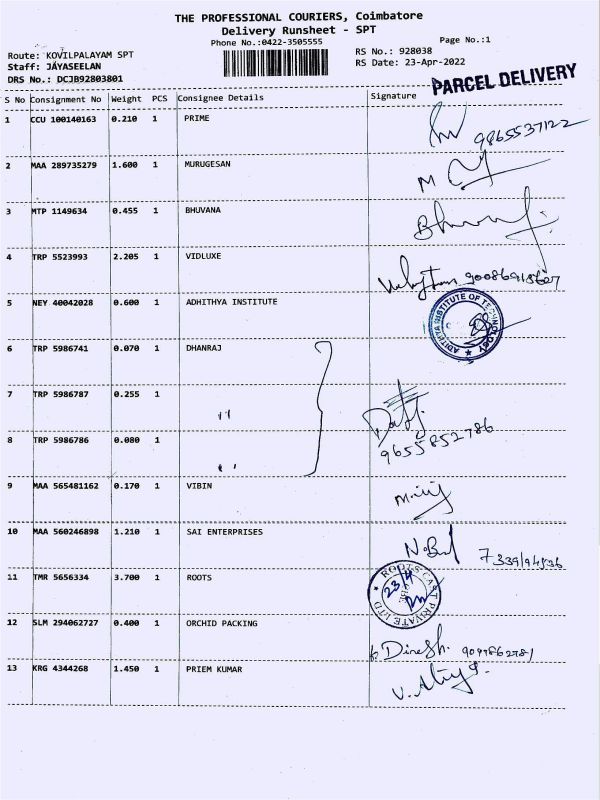 THE PROFESSIONAL COURIERS, Coimbatore
Delivery Runsheet - SPT
Phone No.:0422-3505555
Page No.:1
Route: KOVILPALAYAM SPT
RS No.: 928038
Staff: JAYASEELAN
RS Date: 23-Apr-2022
DRS No.: DCJB92803801
PARCEL DELIVERY
S No Consignment No Weight PCS Consignee Details Signature
1 CCU 100140163 0.210 1 PRIME 9865537122
2 MAA 289735279 1.600 1 MURUGESAN
3 MTP 1149634 0.455 1 BHUVANA
4 TRP 5523993 2.205 1 VIDLUXE
5 NEY 40042028 0.600 1 ADHITHYA INSTITUTE
ADITHYA INSTITUTE OF TECHNOLOGY
6 TRP 5986741 0.070 1 DHANRAJ
7 TRP 5986787 0.255 1 "
8 TRP 5986786 0.080 1 "
9655852786
9 MAA 565481162 0.170 1 VIBIN
10 MAA 560246898 1.210 1 SAI ENTERPRISES
11 TMR 5656334 3.700 1 ROOTS
ROOTS CAST PRIVATE LTD
23/4
12 SLM 294062727 0.400 1 ORCHID PACKING Dinesh.
13 KRG 4344268 1.450 1 PRIEM KUMAR